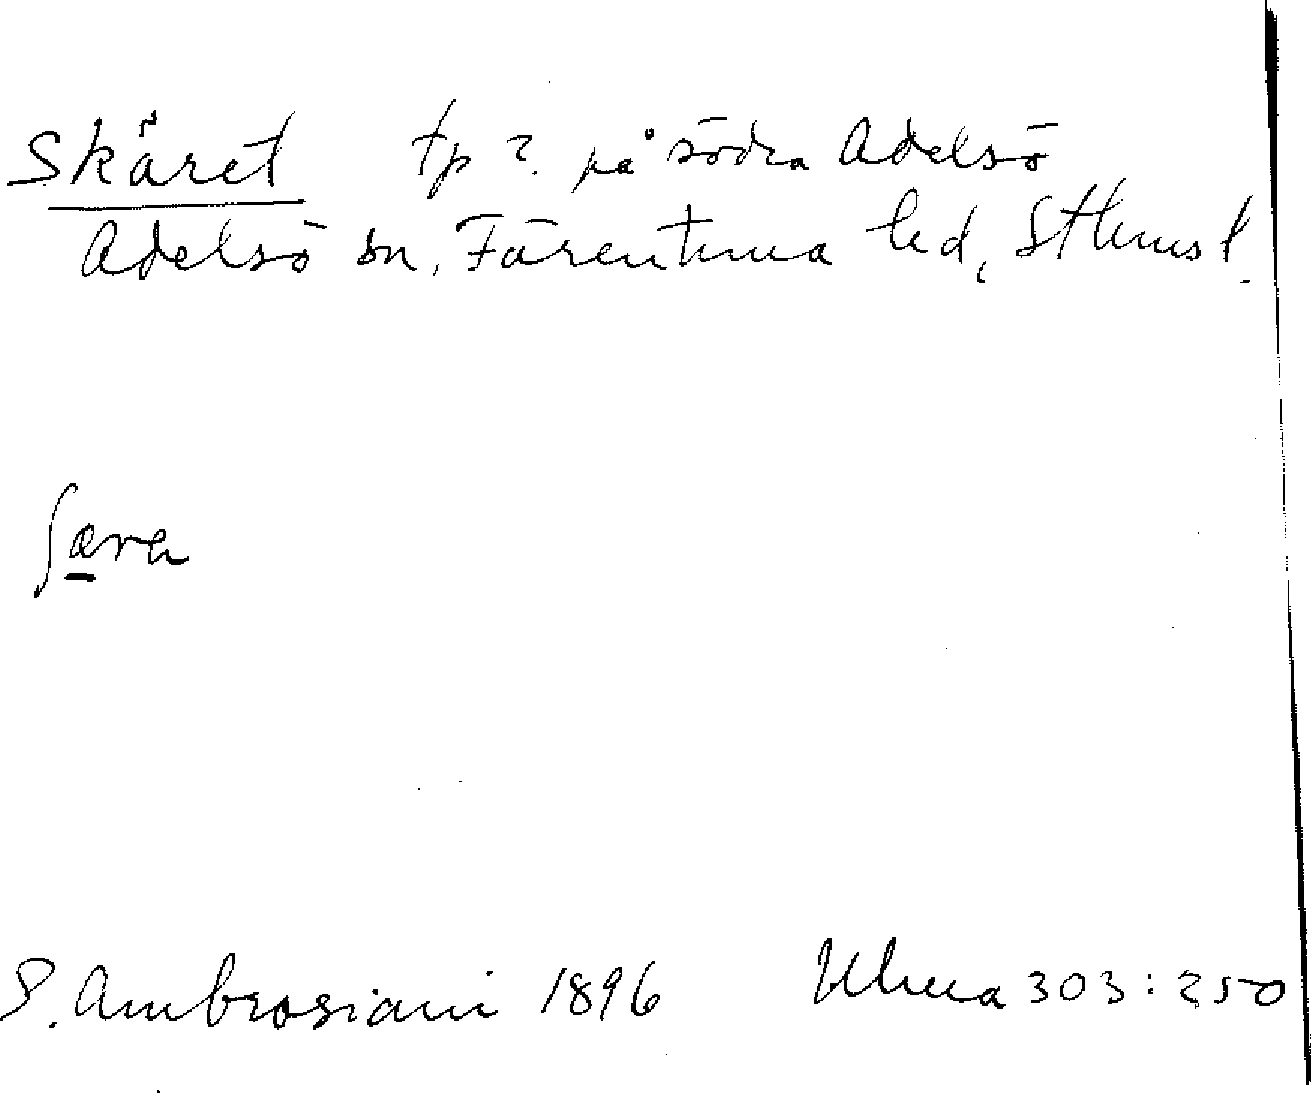 Skäret tp? på södra Adelsö
Adelsö sn, Färentuna hd, Sthms l.
ʃæra
S. Ambrosiani 1896 Uhma 303:250